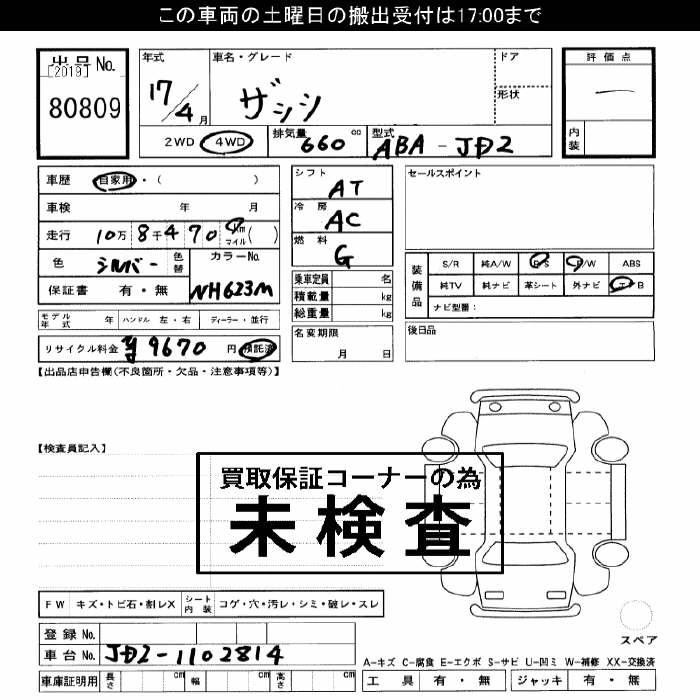 この車両の土曜日の搬出受付は17:00まで
出品No.
[2019]
80809
年式
17/4月
車名・グレード
ザッツ
ドア
形状
2WD 4WD
排気量 660 cc
型式 ABA-JD2
評価点
内装
車歴 自家用・( )
車検 年 月
走行 10万8千470 Km マイル( )
色 シルバー 色替
カラーNo. NH623M
保証書 有・無
シフト AT
冷房 AC
燃料 G
乗車定員 名
積載量 kg
総重量 kg
セールスポイント
装備品
S/R 純A/W P/S P/W ABS
純TV 純ナビ 革シート 外ナビ エアB
ナビ型番:
モデル年式 年 ハンドル 左・右 ディーラー・並行
名変期限 月 日
後日品
リサイクル料金 9670 円 預託済
【出品店申告欄(不良箇所・欠品・注意事項等)】
【検査員記入】
買取保証コーナーの為
未検査
FW キズ・トビ石・割レX シート内装 コゲ・穴・汚レ・シミ・破レ・スレ
登録No.
車台No. JD2-1102814
車庫証明用 長さ cm 幅 cm 高さ cm
スペア
A-キズ C-腐食 E-エクボ S-サビ U-凹ミ W-補修 XX-交換済
工具 有・無 ジャッキ 有・無